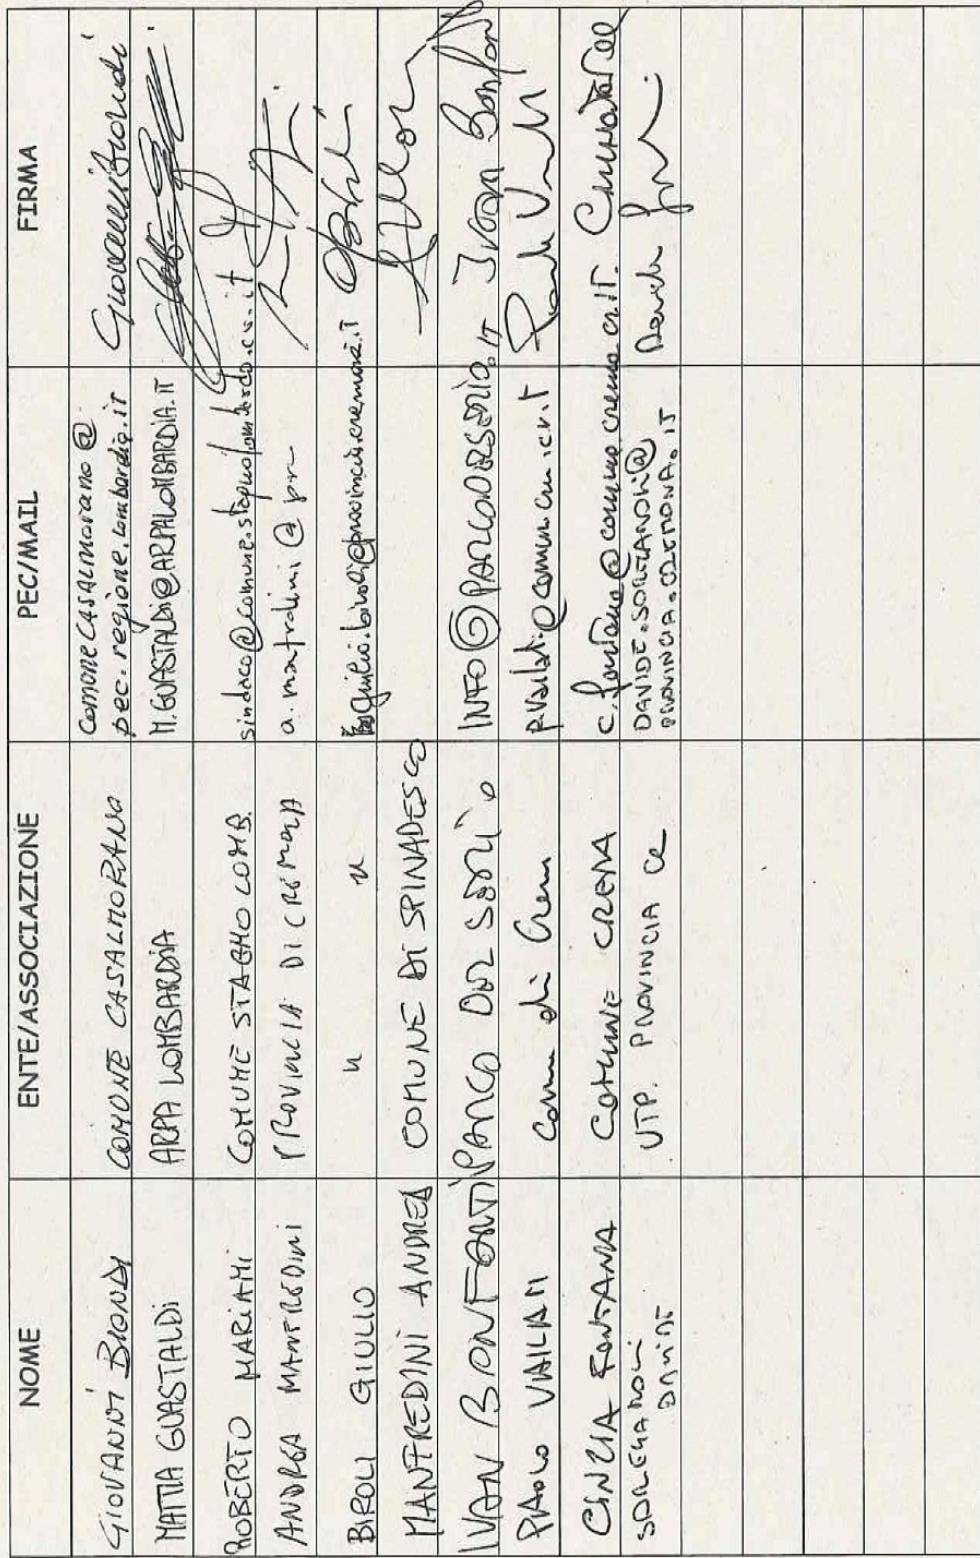 NOME ENTE/ASSOCIAZIONE PEC/MAIL FIRMA
GIOVANNI BIONDI COMUNE CASALMORANO comune CASALMORANO @ Giovanni Biondi
pec.regione.lombardia.it
MATTIA GUASTALDI ARPA LOMBARDIA M.GUASTALDI@ARPALOMBARDIA.IT
ROBERTO MARIANI COMUNE STAGNO LOMB. sindaco@comune.stagnolombardo.cr.it
ANDREA MANFREDINI PROVINCIA DI CREMONA a.manfredini @ pro
BIROLI GIULIO " " giulio.biroli@provincia.cremona.it
MANFREDINI ANDREA COMUNE DI SPINADESCO
IVAN BONFANTI PARCO DEL SERIO INFO@PARCODELSERIO.IT Ivan Bonfanti
PAOLO VAILATI Comune di Crema
CINZIA FONTANA COMUNE CREMA c.fontana@comune.crema.cr.it
SOREGAROLI UTP. PROVINCIA CR DAVIDE.SOREGAROLI@
DAVIDE PROVINCIA.CREMONA.IT